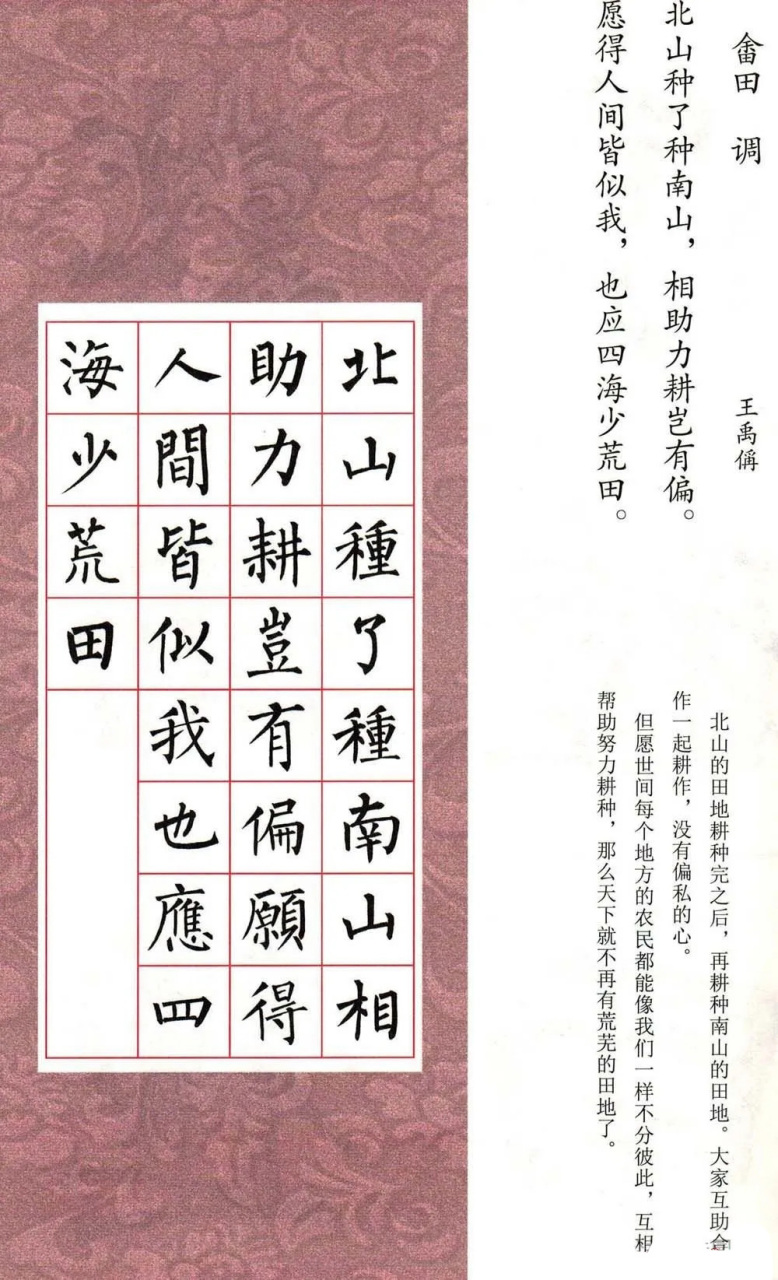 畲田 调
王禹偁
北山种了种南山，相助力耕岂有偏。
愿得人间皆似我，也应四海少荒田。
北山的田地耕种完之后，再耕种南山的田地。大家互助合
作一起耕作，没有偏私的心。
但愿世间每个地方的农民都能像我们一样不分彼此，互相
帮助努力耕种，那么天下就不再有荒芜的田地了。
北山種了種南山相
助力耕豈有偏願得
人間皆似我也應四
海少荒田